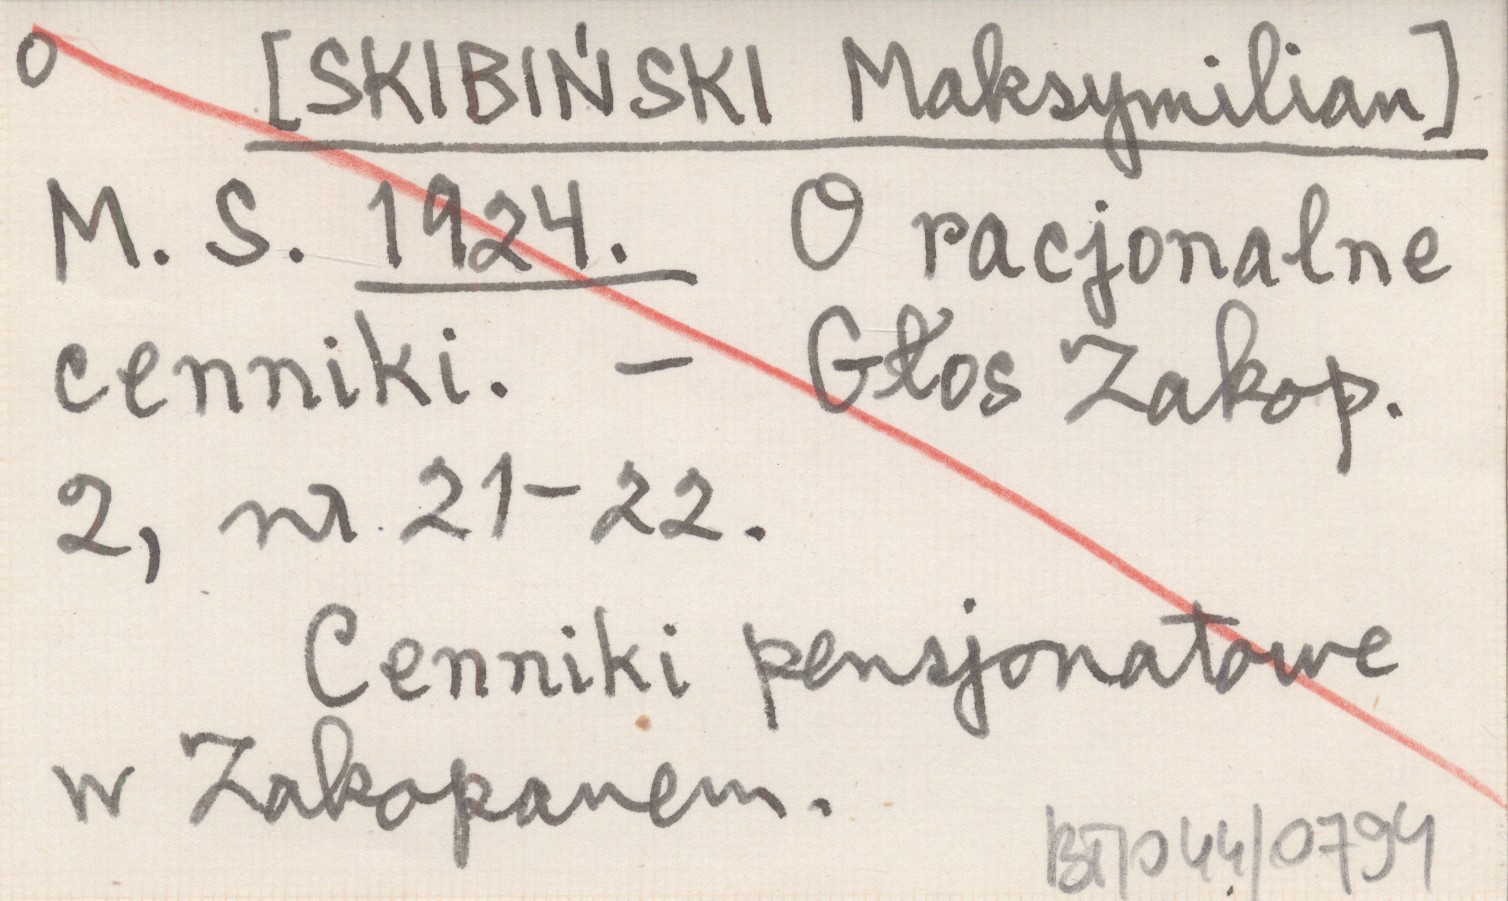 o [SKIBIŃSKI Maksymilian]
M. S. 1924. O racjonalne
cenniki. – Głos Zakop.
2, nr 21–22.
Cenniki pensjonatowe
w Zakopanem.
BT/044/0794